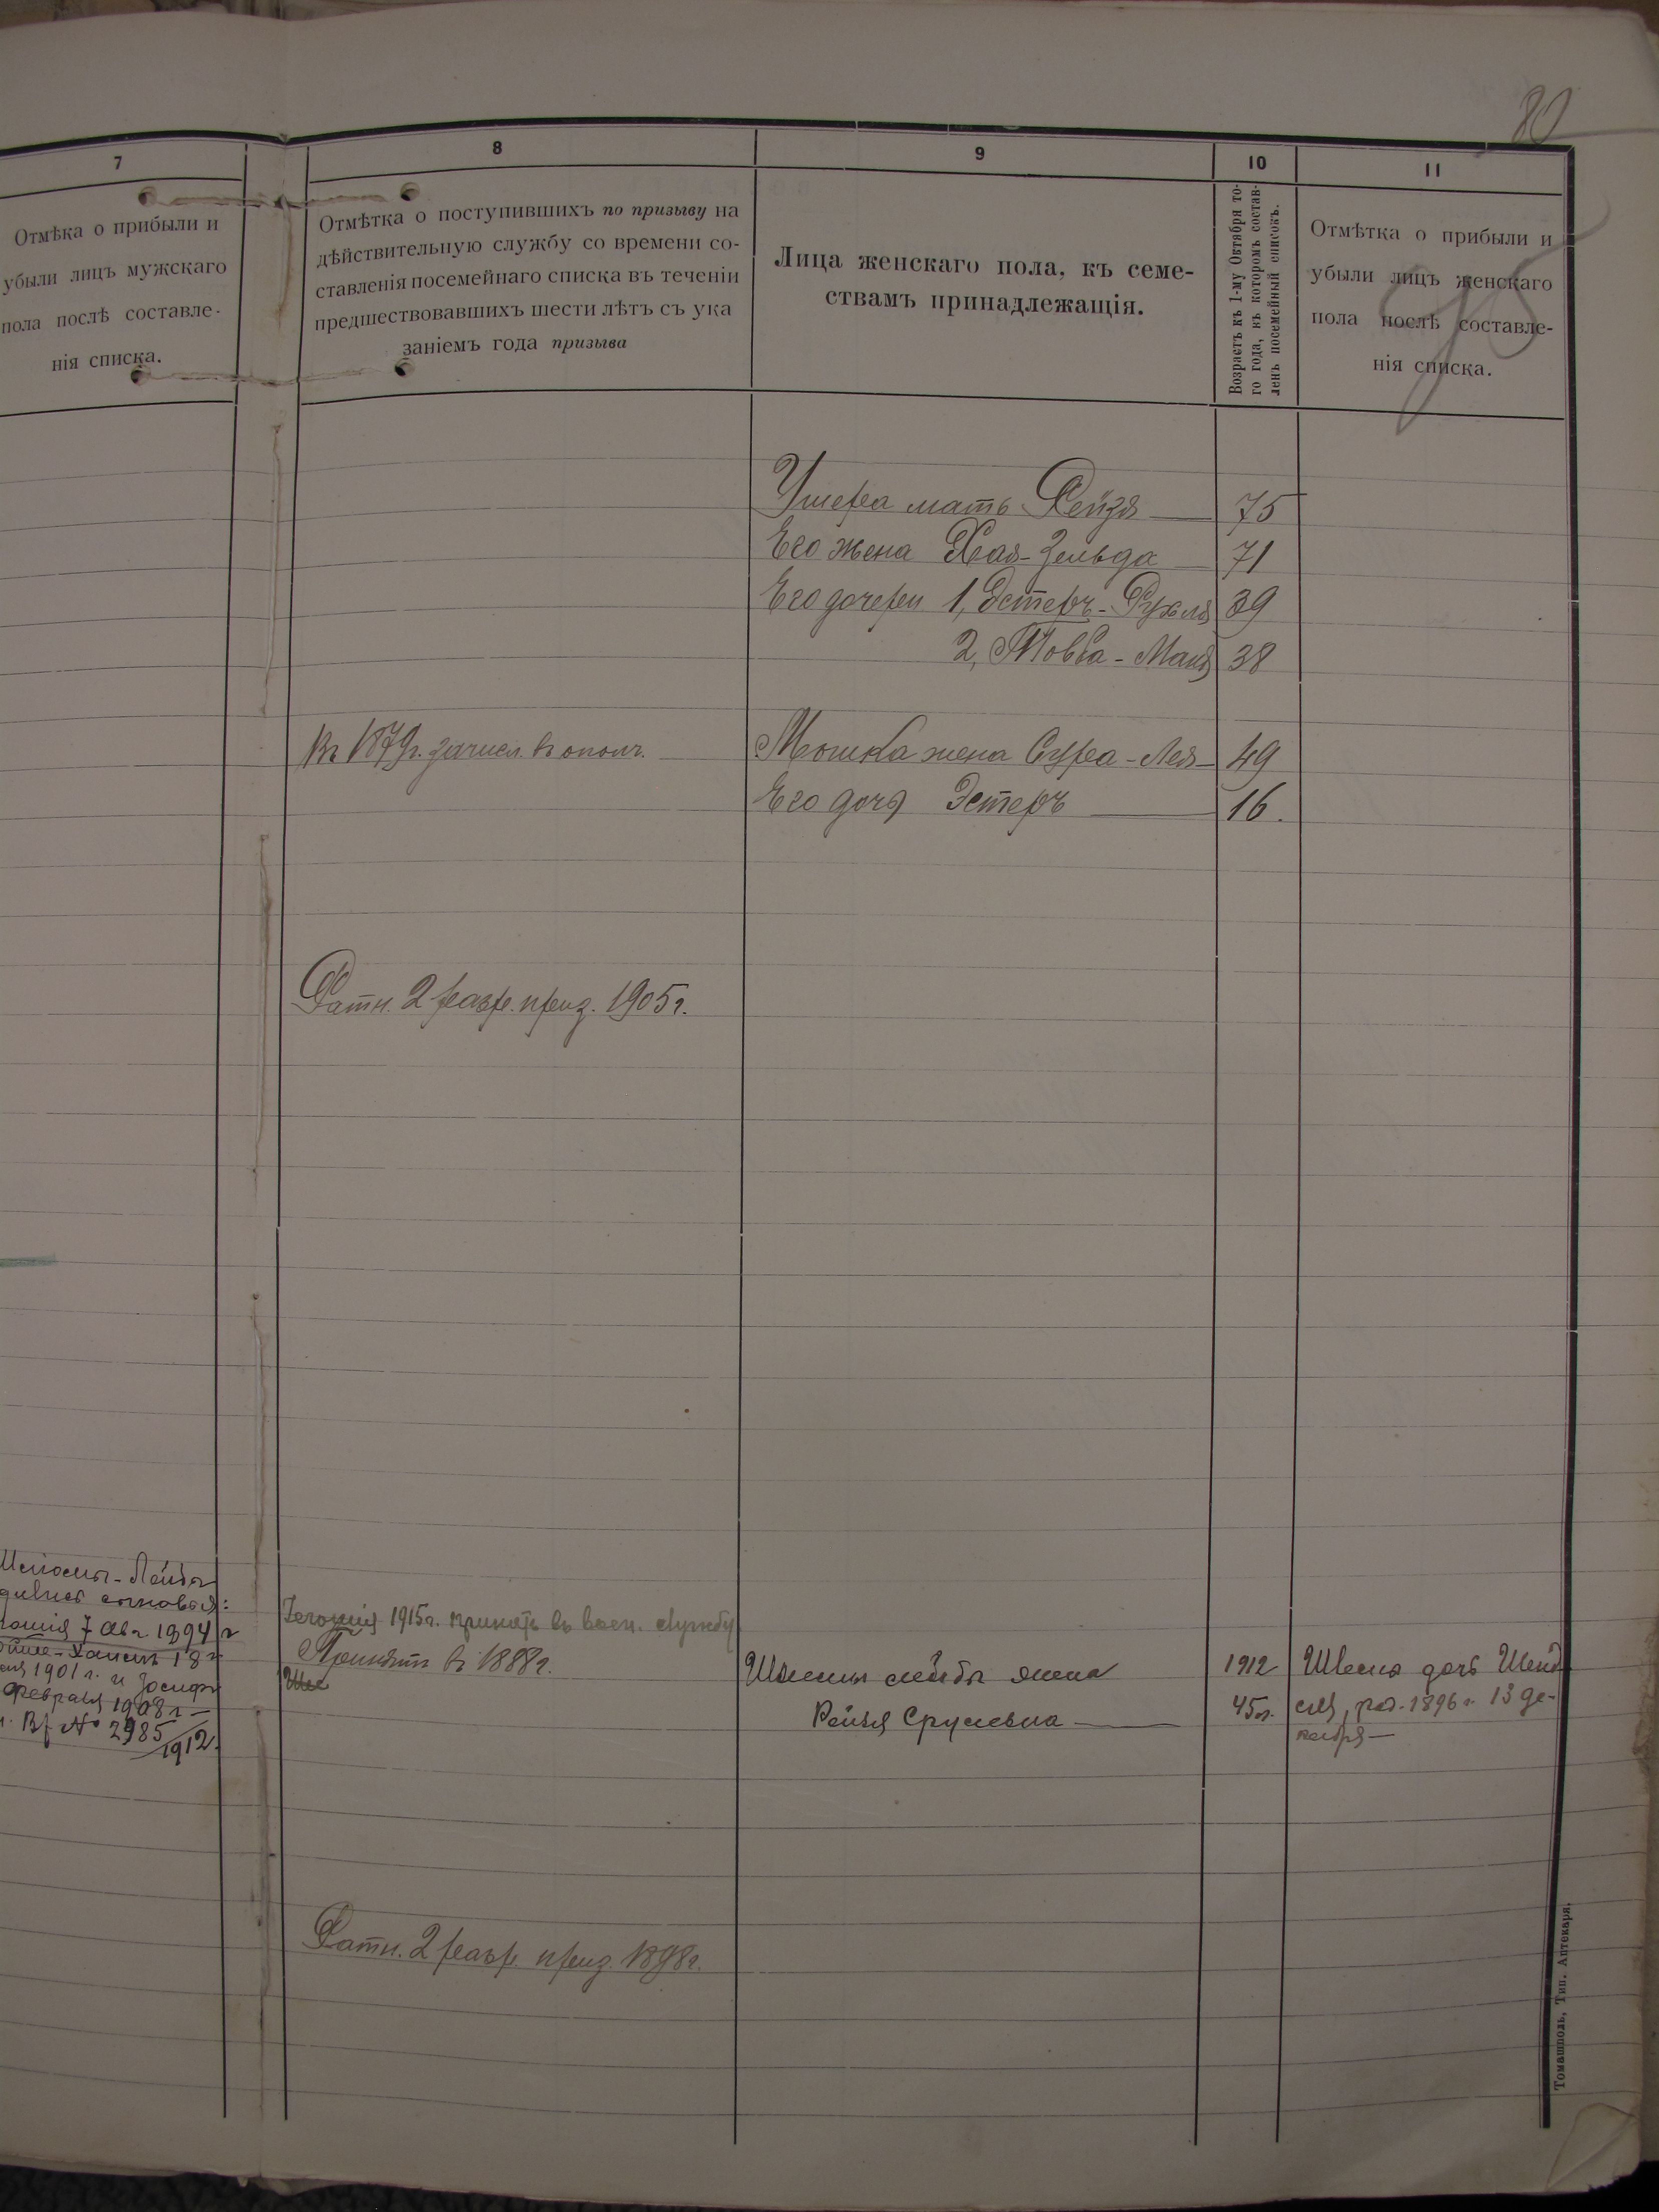 80
7
8
9
10
11
Отмѣка о прибыли и
убыли лицъ мужскаго
пола послѣ составле-
нія списка.
Отмѣтка о поступившихъ по призыву на
дѣйствительную службу со времени со-
ставленія посемейнаго списка въ теченіи
предшествовавшихъ шести лѣтъ съ ука
заніемъ года призыва
Лица женскаго пола, къ семе-
ствамъ принадлежащія.
Возрастъ къ 1-му Октября то-
го года, въ которомъ состав-
ленъ посемейный списокъ.
Отмѣтка о прибыли и
убыли лицъ женскаго
пола послѣ составле-
нія списка.
Ушера мать Рейзя 75
Его жена Хая-Зельда 71
Его дочери 1, Эстеръ-Рухля 39
2, Товба-Маня 38
Въ 1879г. зачисл. въ ополч. Мошка жена Сура-Лея 49
Его дочь Эстеръ 16.
Ратн. 2 разр. приз. 1905г.
Лейбы
сыновья:
7 Авг. 1894 г
18
1901 г. и Іосифъ
Февраля 1908 г.
№ 2985
1912.
1915г. принятъ въ воен. службу
Принятъ въ 1888г.
лейбы жена
Рейзя Срулевна
1912
45л.
дочь
род. 1896 г. 13 де-
кабря
Ратн. 2 разр. приз. 1898г.
Томашполь, Тип. Аптекаря.